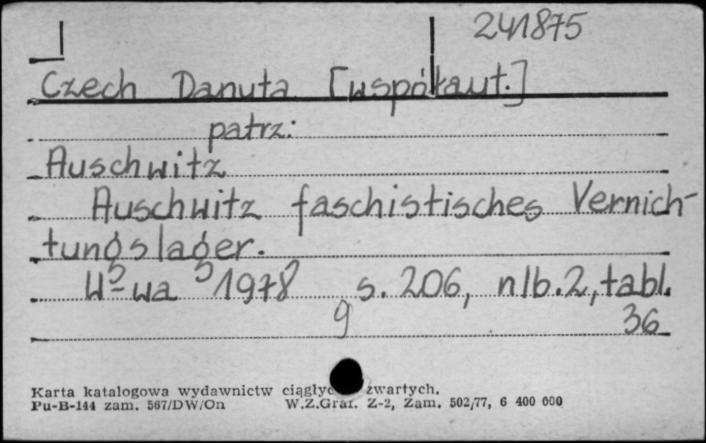 241875
Czech Danuta [współaut.]
patrz:
Auschwitz
Auschwitz faschistisches Vernich-
tungslager.
W-wa 1978 s. 206, nlb. 2, tabl.
36
9
Karta katalogowa wydawnictw zwartych.
Pu-B-144 zam. 567/DW/On W.Z.Graf. Z-2, Zam. 502/77, 6 400 000